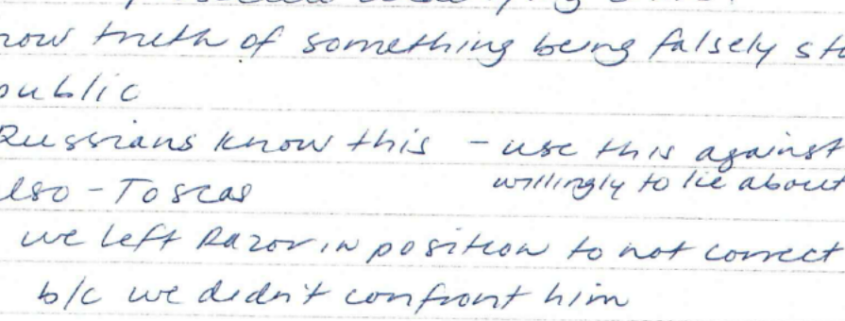 now truth of something being falsely sta
public
Russians know this - use this against
also - Toscas willingly to lie about
we left Razor in position to not correct
b/c we didn't confront him